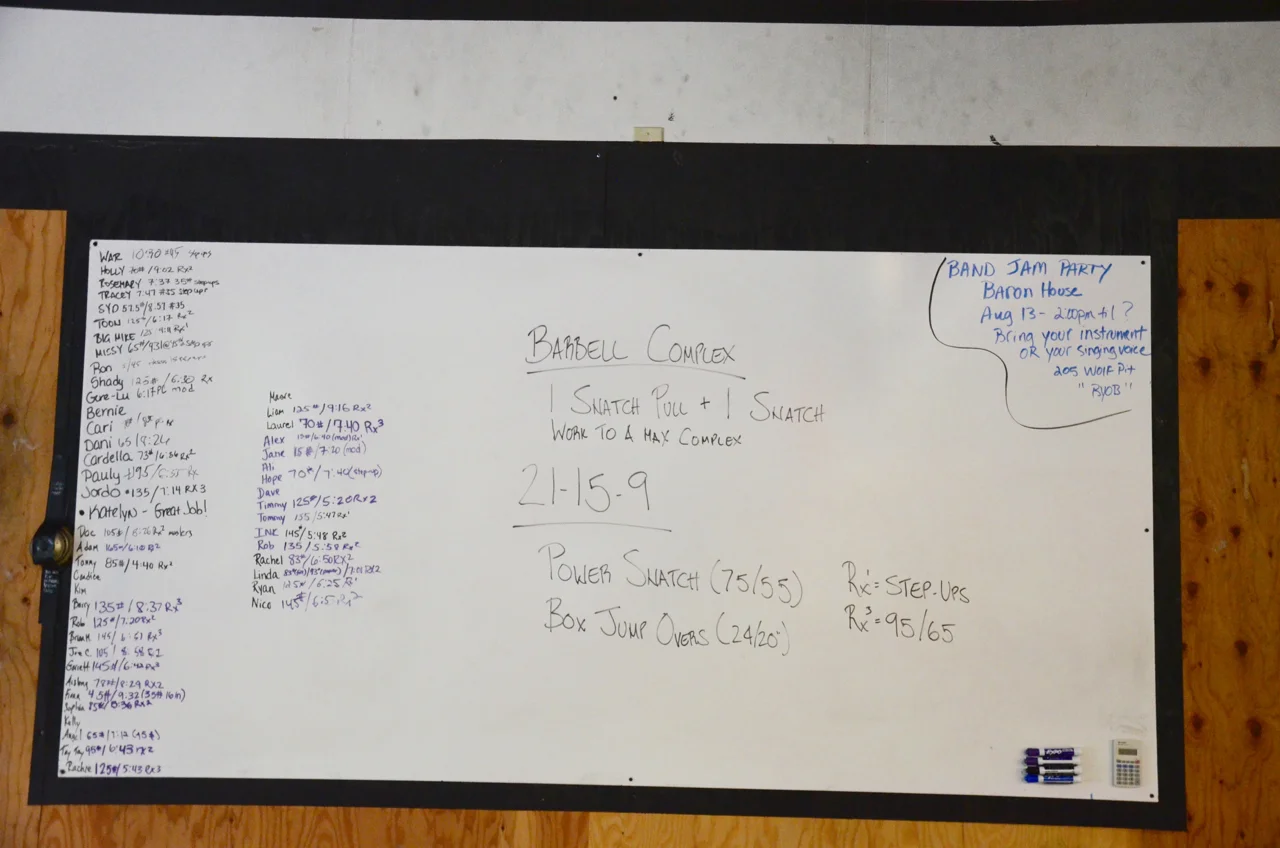 WAR 10:30 #45 step ups
HOLLY 70# / 9:02 Rx2
ROSEMARY 7:37 35# step-ups
TRACEY 7:47 #35 step ups
SYD 57.5# / 8:57 #35
TOON 125# / 6:17 Rx2
BIG MIKE
MISSY 65#
Ron
Shady 125# / 6:30 Rx
Gene-Lu 6:17 mod
Bernie
Cari
Dani 65 / 8:24
Cardella 73# / 6:56 Rx2
Pauly #195 / 6:35 Rx
Jordo #135 / 7:14 RX3
• Katelyn - Great Job!
Doc 105# /
Adam 165# / 6:10 Rx2
Tommy 85# / 4:40 Rx2
Candice
Kim
Barry 135# / 8:37 Rx3
Rob 125# / 7:20 Rx2
Brian M. 145 / 6:51 Rx3
Jim C. 105 / 8:58
Garrett 145# / 6:42 Rx3
78# / 8:29 RX2
4.5# / 9:32 (35# 16in)
Sophia 85# / 8:36 Rx2
Kelly
Angel 65# / 7:12 (45#)
Tay Tay 95# / 6:43 rx2
Rachie 125# / 5:43 Rx3
Moore
Liam 125# / 9:16 Rx2
Laurel 70# / 7:40 Rx3
Alex
Jane 15# / 7:20 (mod)
Ali
Hope 70# / 7:40 (step-up)
Dave
Timmy 125# / 5:20 Rx2
Tommy 155 / 5:47 Rx1
INK 145# / 5:48 Rx2
Rob 135 / 5:58 Rx2
Rachel 83# / 6:50 RX2
Linda
Ryan 125# / 6:25
Nico 145# /
BARBELL COMPLEX
1 SNATCH PULL + 1 SNATCH
WORK TO A MAX COMPLEX
21-15-9
POWER SNATCH (75/55)
BOX JUMP OVERS (24/20")
Rx1 = STEP-UPS
Rx3 = 95/65
BAND JAM PARTY
Baron House
Aug 13 - 2:00pm til ?
Bring your instrument
OR your singing voice
205 WOLF Pit
"BYOB"
EXPO